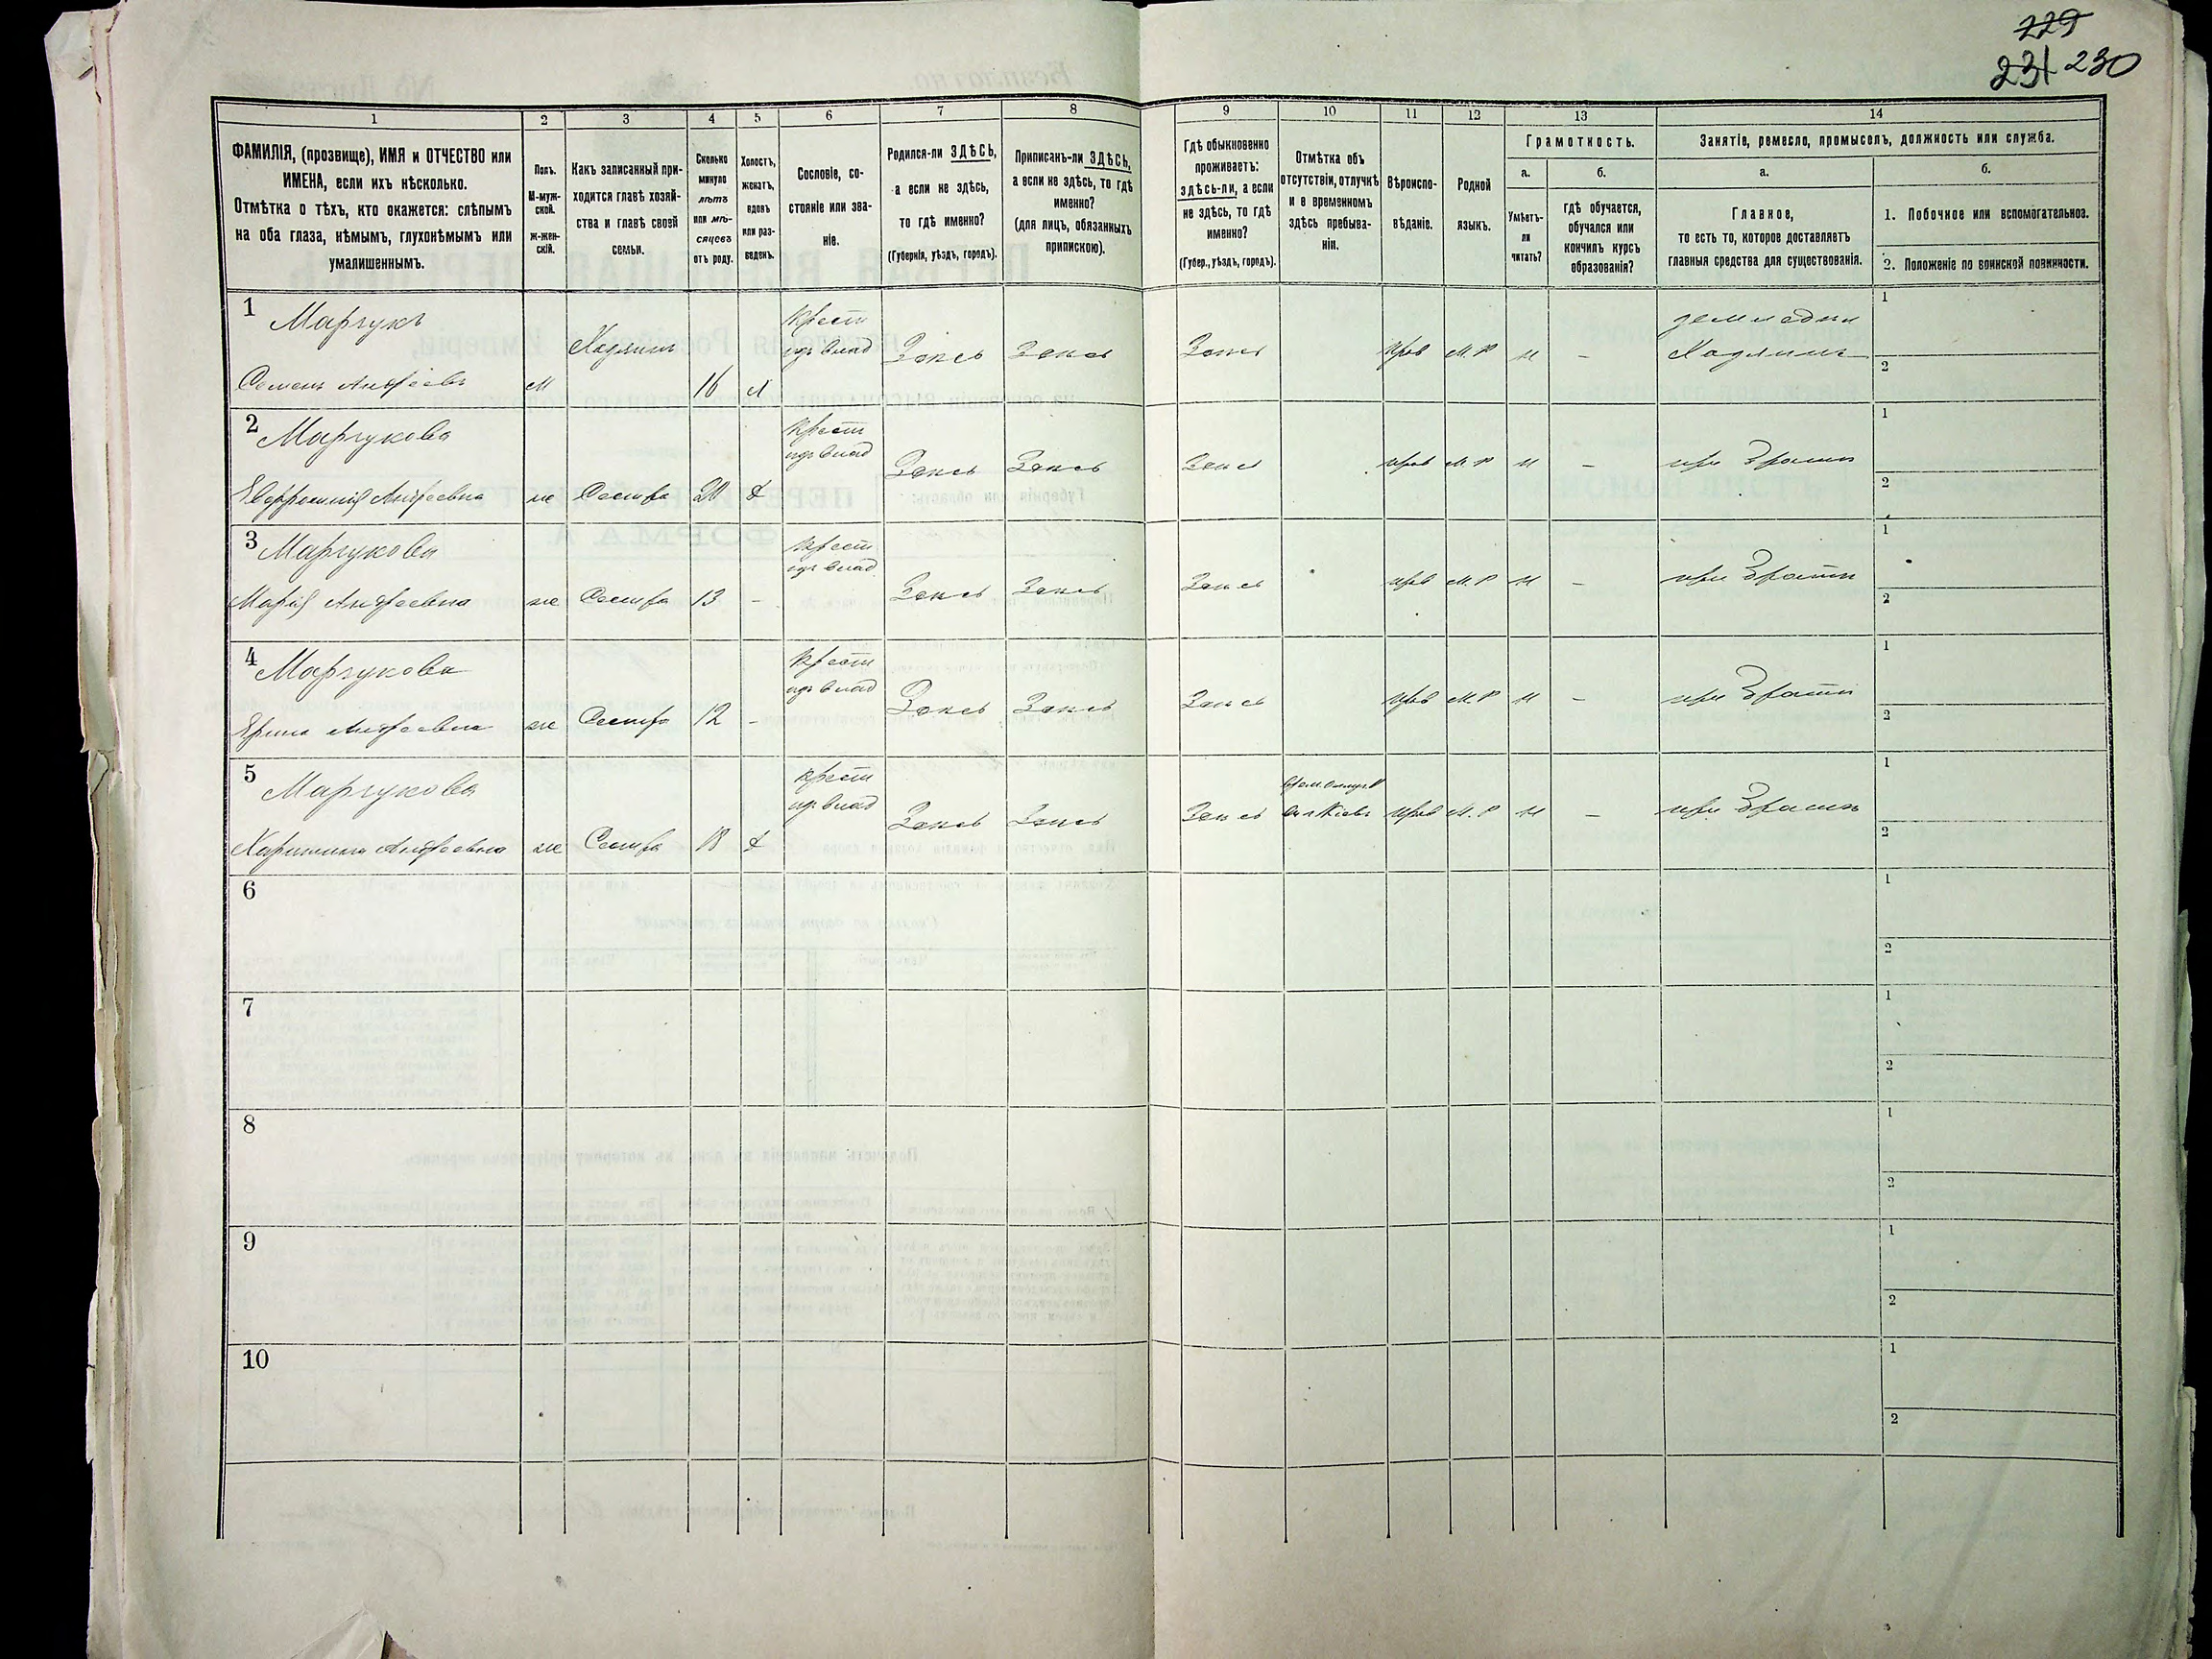 229
231 230
1 2 3 4 5 6 7 8 9 10 11 12 13 14
ФАМИЛІЯ, (прозвище), ИМЯ и ОТЧЕСТВО или
ИМЕНА, если ихъ нѣсколько.
Отмѣтка о тѣхъ, кто окажется: слѣпымъ
на оба глаза, нѣмымъ, глухонѣмымъ или
умалишеннымъ.
Полъ.
М-муж-
ской.
ж-жен-
скій.
Какъ записанный при-
ходится главѣ хозяй-
ства и главѣ своей
семьи.
Сколько
минуло
лѣтъ
или мѣ-
сяцевъ
отъ роду.
Холостъ,
женатъ,
вдовъ
или раз-
веденъ.
Сословіе, со-
стояніе или зва-
ніе.
Родился-ли ЗДѢСЬ,
а если не здѣсь,
то гдѣ именно?
(Губернія, уѣздъ, городъ).
Приписанъ-ли ЗДѢСЬ,
а если не здѣсь, то гдѣ
именно?
(для лицъ, обязанныхъ
припискою).
Гдѣ обыкновенно
проживаетъ:
здѣсь-ли, а если
не здѣсь, то гдѣ
именно?
(Губер., уѣздъ, городъ).
Отмѣтка объ
отсутствіи, отлучкѣ
и о временномъ
здѣсь пребыва-
ніи.
Вѣроиспо-
вѣданіе.
Родной
языкъ.
Грамотность.
а.
Умѣетъ-
ли
читать?
б.
гдѣ обучается,
обучался или
кончилъ курсъ
образованія?
Занятіе, ремесло, промыселъ, должность или служба.
а.
Главное,
то есть то, которое доставляетъ
главныя средства для существованія.
б.
1. Побочное или вспомогательное.
2. Положеніе по воинской повинности.
1 Марчукъ
Семенъ Андреевъ м Хозяинъ 16 х крест Здесь Здесь Здесь прав М.Р н – Хозяинъ 1
2
2 Марчукова
Андреевна ж Сестра 20 д крест Здесь Здесь Здесь прав М.Р н – при Брати 1
2
3 Марчукова
Марія Андреевна ж Сестра 13 – крест Здесь Здесь Здесь прав М.Р н – при Брати 1
2
4 Марчукова
Андреевна ж Сестра 12 – крест Здесь Здесь Здесь прав М.Р н – при Брати 1
2
5 Марчукова
Андреевна ж Сестра 18 д крест Здесь Здесь Здесь прав М.Р н – при Брати 1
2
6 1
2
7 1
2
8 1
2
9 1
2
10 1
2